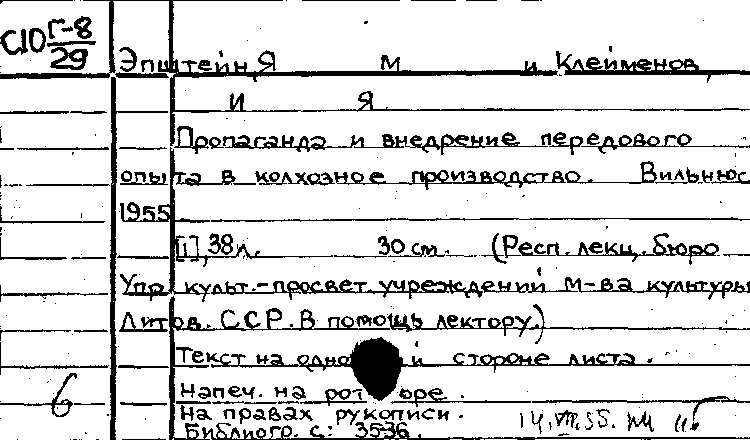 С10 Г-8/29
Эпштейн, Я М и Клейменов,
И Я
Пропаганда и внедрение передового
опыта в колхозное производство. Вильнюс
1955
[1], 38 л. 30 см. (Респ. лекц. бюро
Упр культ.-просвет. учреждений М-ва культуры
Литов. ССР. В помощь лектору.)
Текст на одно й стороне листа.
Напеч. на рот оре.
На правах рукописи.
6 Библиогр. с: 35-36. 14.VII.55.